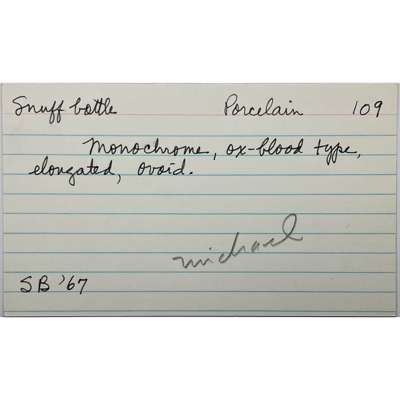 Snuff bottle Porcelain 109
Monochrome, ox-blood type,
elongated, ovoid.
michael
SB '67